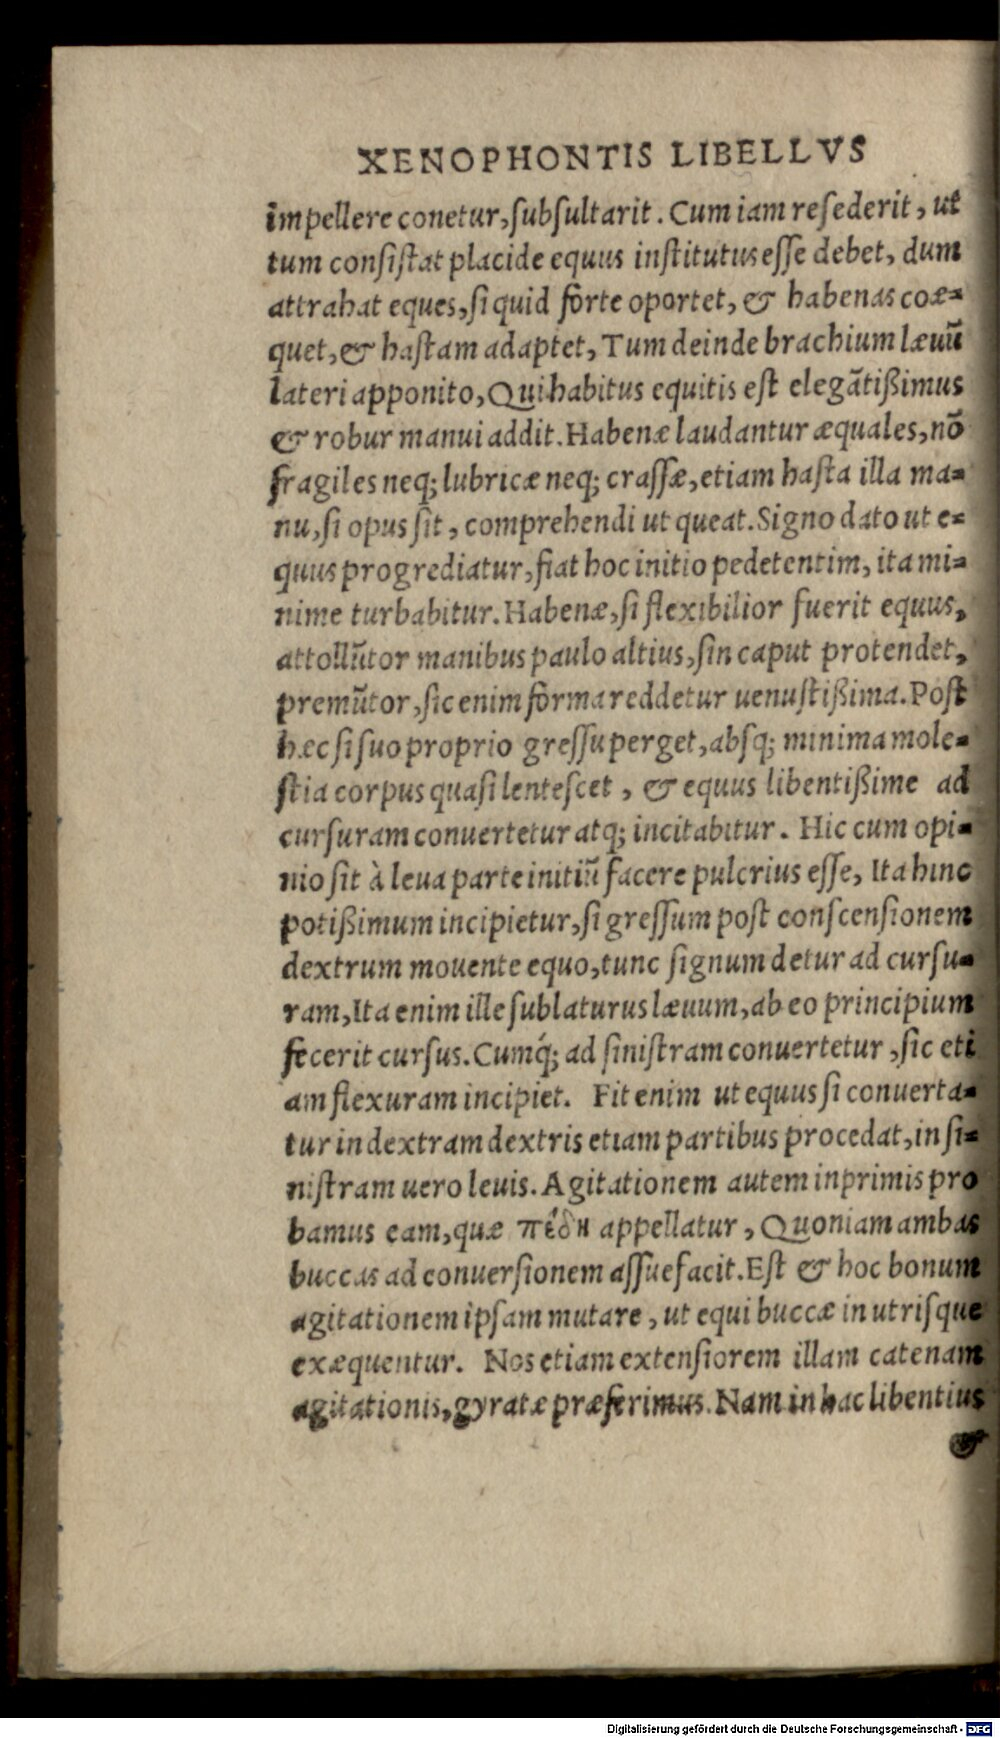 XENOPHONTIS LIBELLVS
impellere conetur, ſubſultarit. Cum iam reſederit, ut
tum conſiſtat placide equus inſtitutus eſſe debet, dum
attrahat eques, ſi quid forte oportet, & habenas coæ-
quet, & haſtam adaptet, Tum deinde brachium læuũ
lateri apponito, Qui habitus equitis eſt elegãtißimus
& robur manui addit. Habenæ laudantur æquales, nõ
fragiles neq; lubricæ neq; craſſæ, etiam haſta illa ma-
nu, ſi opus ſit, comprehendi ut queat. Signo dato ut e-
quus progrediatur, fiat hoc initio pedetentim, ita mi-
nime turbabitur. Habenæ, ſi flexibilior fuerit equus,
attollũtor manibus paulo altius, ſin caput protendet,
premũtor, ſic enim forma reddetur uenuſtißima. Poſt
hæc ſi ſuo proprio greſſu perget, abſq; minima mole-
ſtia corpus quaſi lenteſcet, & equus libentißime ad
curſuram conuertetur atq; incitabitur. Hic cum opi-
nio ſit à leua parte initiũ facere pulcrius eſſe, Ita hinc
potißimum incipietur, ſi greſſum poſt conſcenſionem
dextrum mouente equo, tunc ſignum detur ad curſu-
ram, Ita enim ille ſublaturus læuum, ab eo principium
fecerit curſus. Cumq́; ad ſiniſtram conuertetur, ſic eti
am flexuram incipiet. Fit enim ut equus ſi conuerta-
tur in dextram dextris etiam partibus procedat, in ſi-
niſtram uero leuis. Agitationem autem inprimis pro
bamus eam, quæ πέδη appellatur, Quoniam ambas
buccas ad conuerſionem aſſuefacit. Eſt & hoc bonum
agitationem ipſam mutare, ut equi buccæ in utriſque
exæquentur. Nos etiam extenſiorem illam catenam
agitationis, gyratæ præferimus. Nam in hac libentius
&
Digitalisierung gefördert durch die Deutsche Forschungsgemeinschaft - DFG